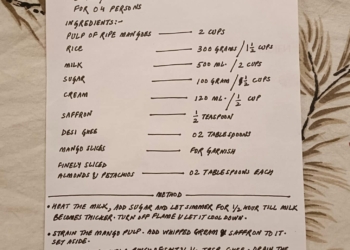 FOR 04 PERSONS
INGREDIENTS:-
PULP OF RIPE MANGOES — 2 CUPS
RICE — 300 GRAMS / 1 1/2 CUPS
MILK — 500 ML. / 2 CUPS
SUGAR — 100 GRAM / 1/2 CUPS
CREAM — 120 ML. / 1/2 CUP
SAFFRON — 1/2 TEASPOON
DESI GHEE — 02 TABLESPOONS
MANGO SLICES — FOR GARNISH
FINELY SLICED
ALMONDS & PISTACHOS — 02 TABLESPOONS EACH
METHOD
• HEAT THE MILK, ADD SUGAR AND LET SIMMER FOR 1/2 HOUR TILL MILK
BECOMES THICKER. TURN OFF FLAME & LET IT COOL DOWN.
• STRAIN THE MANGO PULP. ADD WHIPPED CREAM & SAFFRON TO IT.
SET ASIDE.